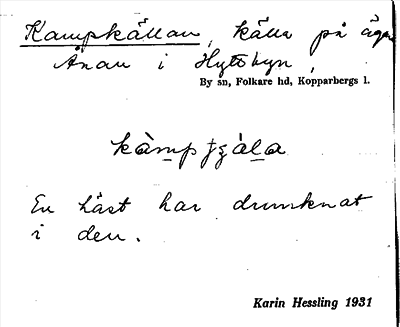 Kampkällan, källa på äga
Ånan i Hyttbyn,
By sn, Folkare hd, Kopparbergs l.
En häst har drunknat
i den.
Karin Hessling 1931